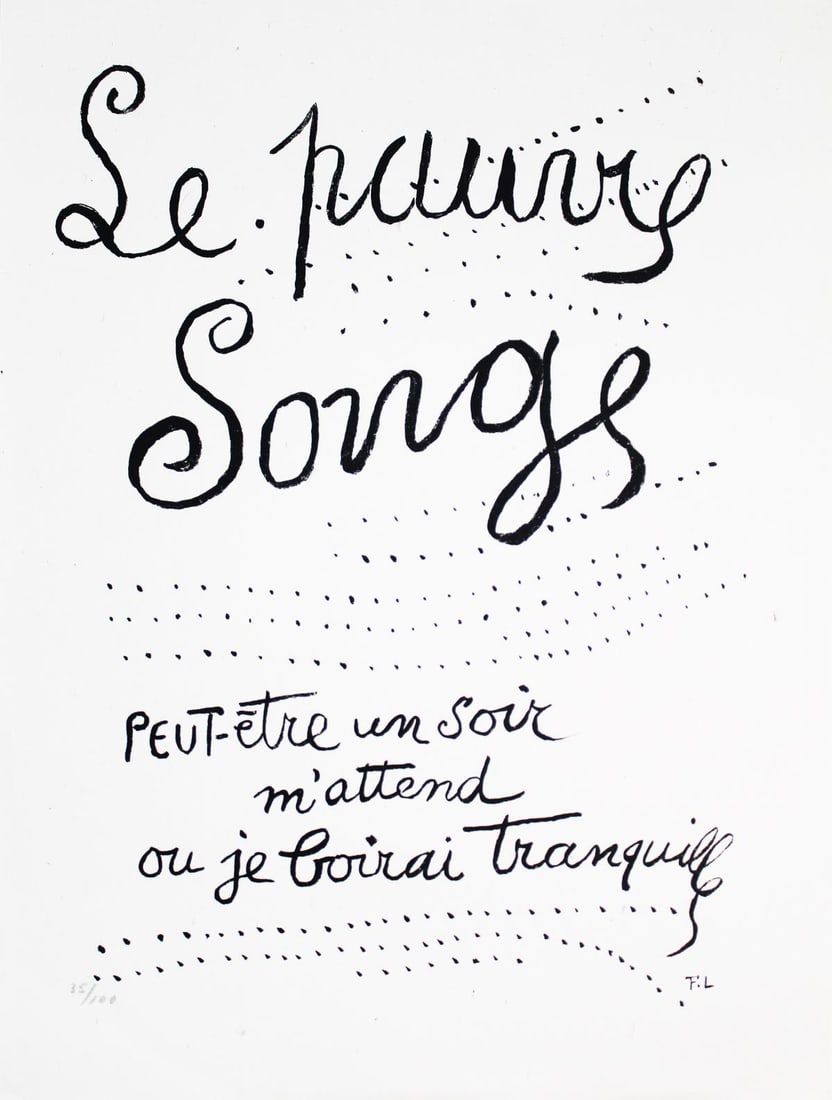 Le pauvre
Songe
PEUT-être un soir
m'attend
ou je boirai tranquille
35/100
F.L